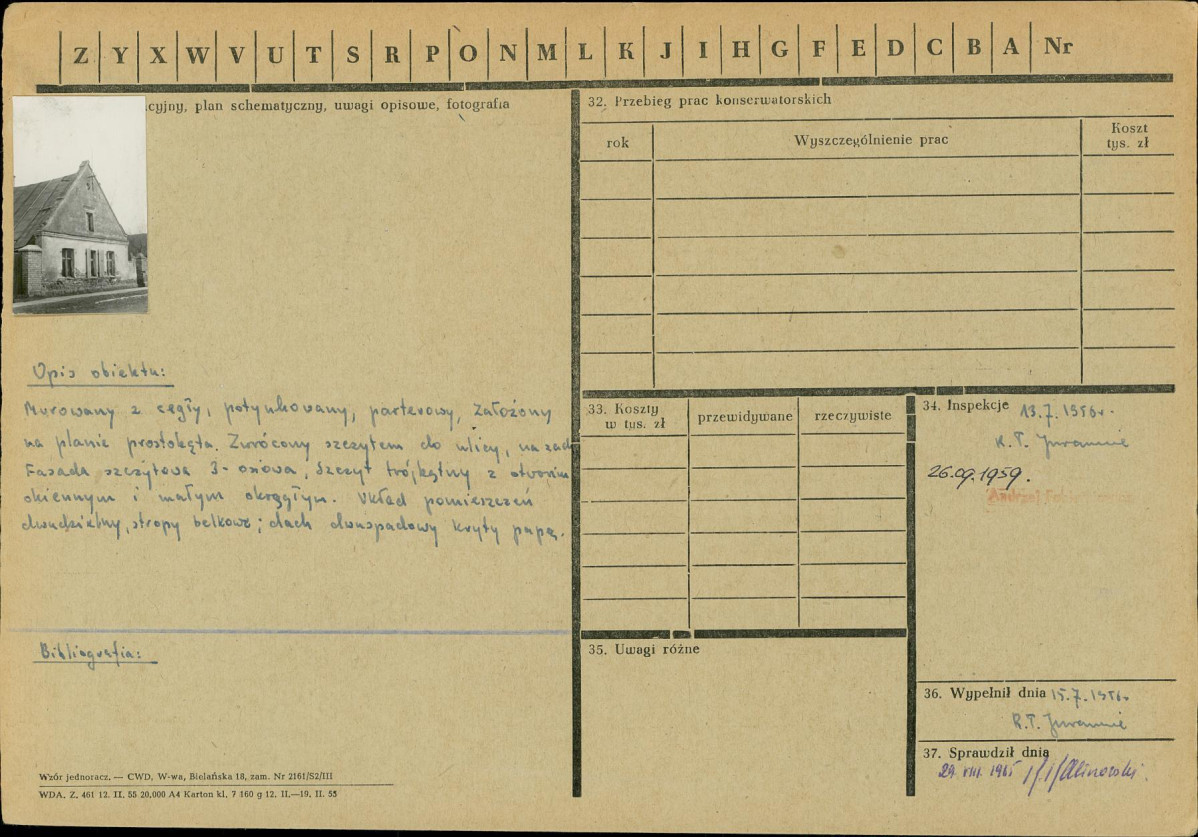 Z Y X W V U T S R P O N M L K J I H G F E D C B A Nr
cyjny, plan schematyczny, uwagi opisowe, fotografia
Opis obiektu:
Murowany z cegły, potynkowany, parterowy, Założony
na planie prostokąta. Zwrócony szczytem do ulicy,
Fasada szczytowa 3-osiowa, Szczyt trójkątny z otworem
okiennym i małym okrągłym. Układ pomieszczeń
dwudzielny, stropy belkowe; dach dwuspadowy kryty papą.
Bibliografia:
Wzór jednoracz. — CWD, W-wa, Bielańska 18, zam. Nr 2161/S2/III
WDA. Z. 461 12. II. 55 20.000 A4 Karton kl. 7 160 g 12. II.—19. II. 55
32. Przebieg prac konserwatorskich
rok
Wyszczególnienie prac
Koszt
tys. zł
33. Koszty
w tys. zł
przewidywane
rzeczywiste
34. Inspekcje 13.7.1956r.
26.09.1959.
Andrzej
35. Uwagi różne
36. Wypełnił dnia 15.7.1956r.
37. Sprawdził dnia
29. VIII. 1965 Kalinowski.